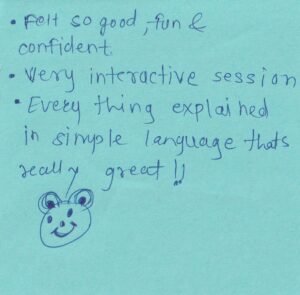 • Felt so good, fun &
confident.
• Very interactive session
• Every thing explained
in simple language thats
really great !!